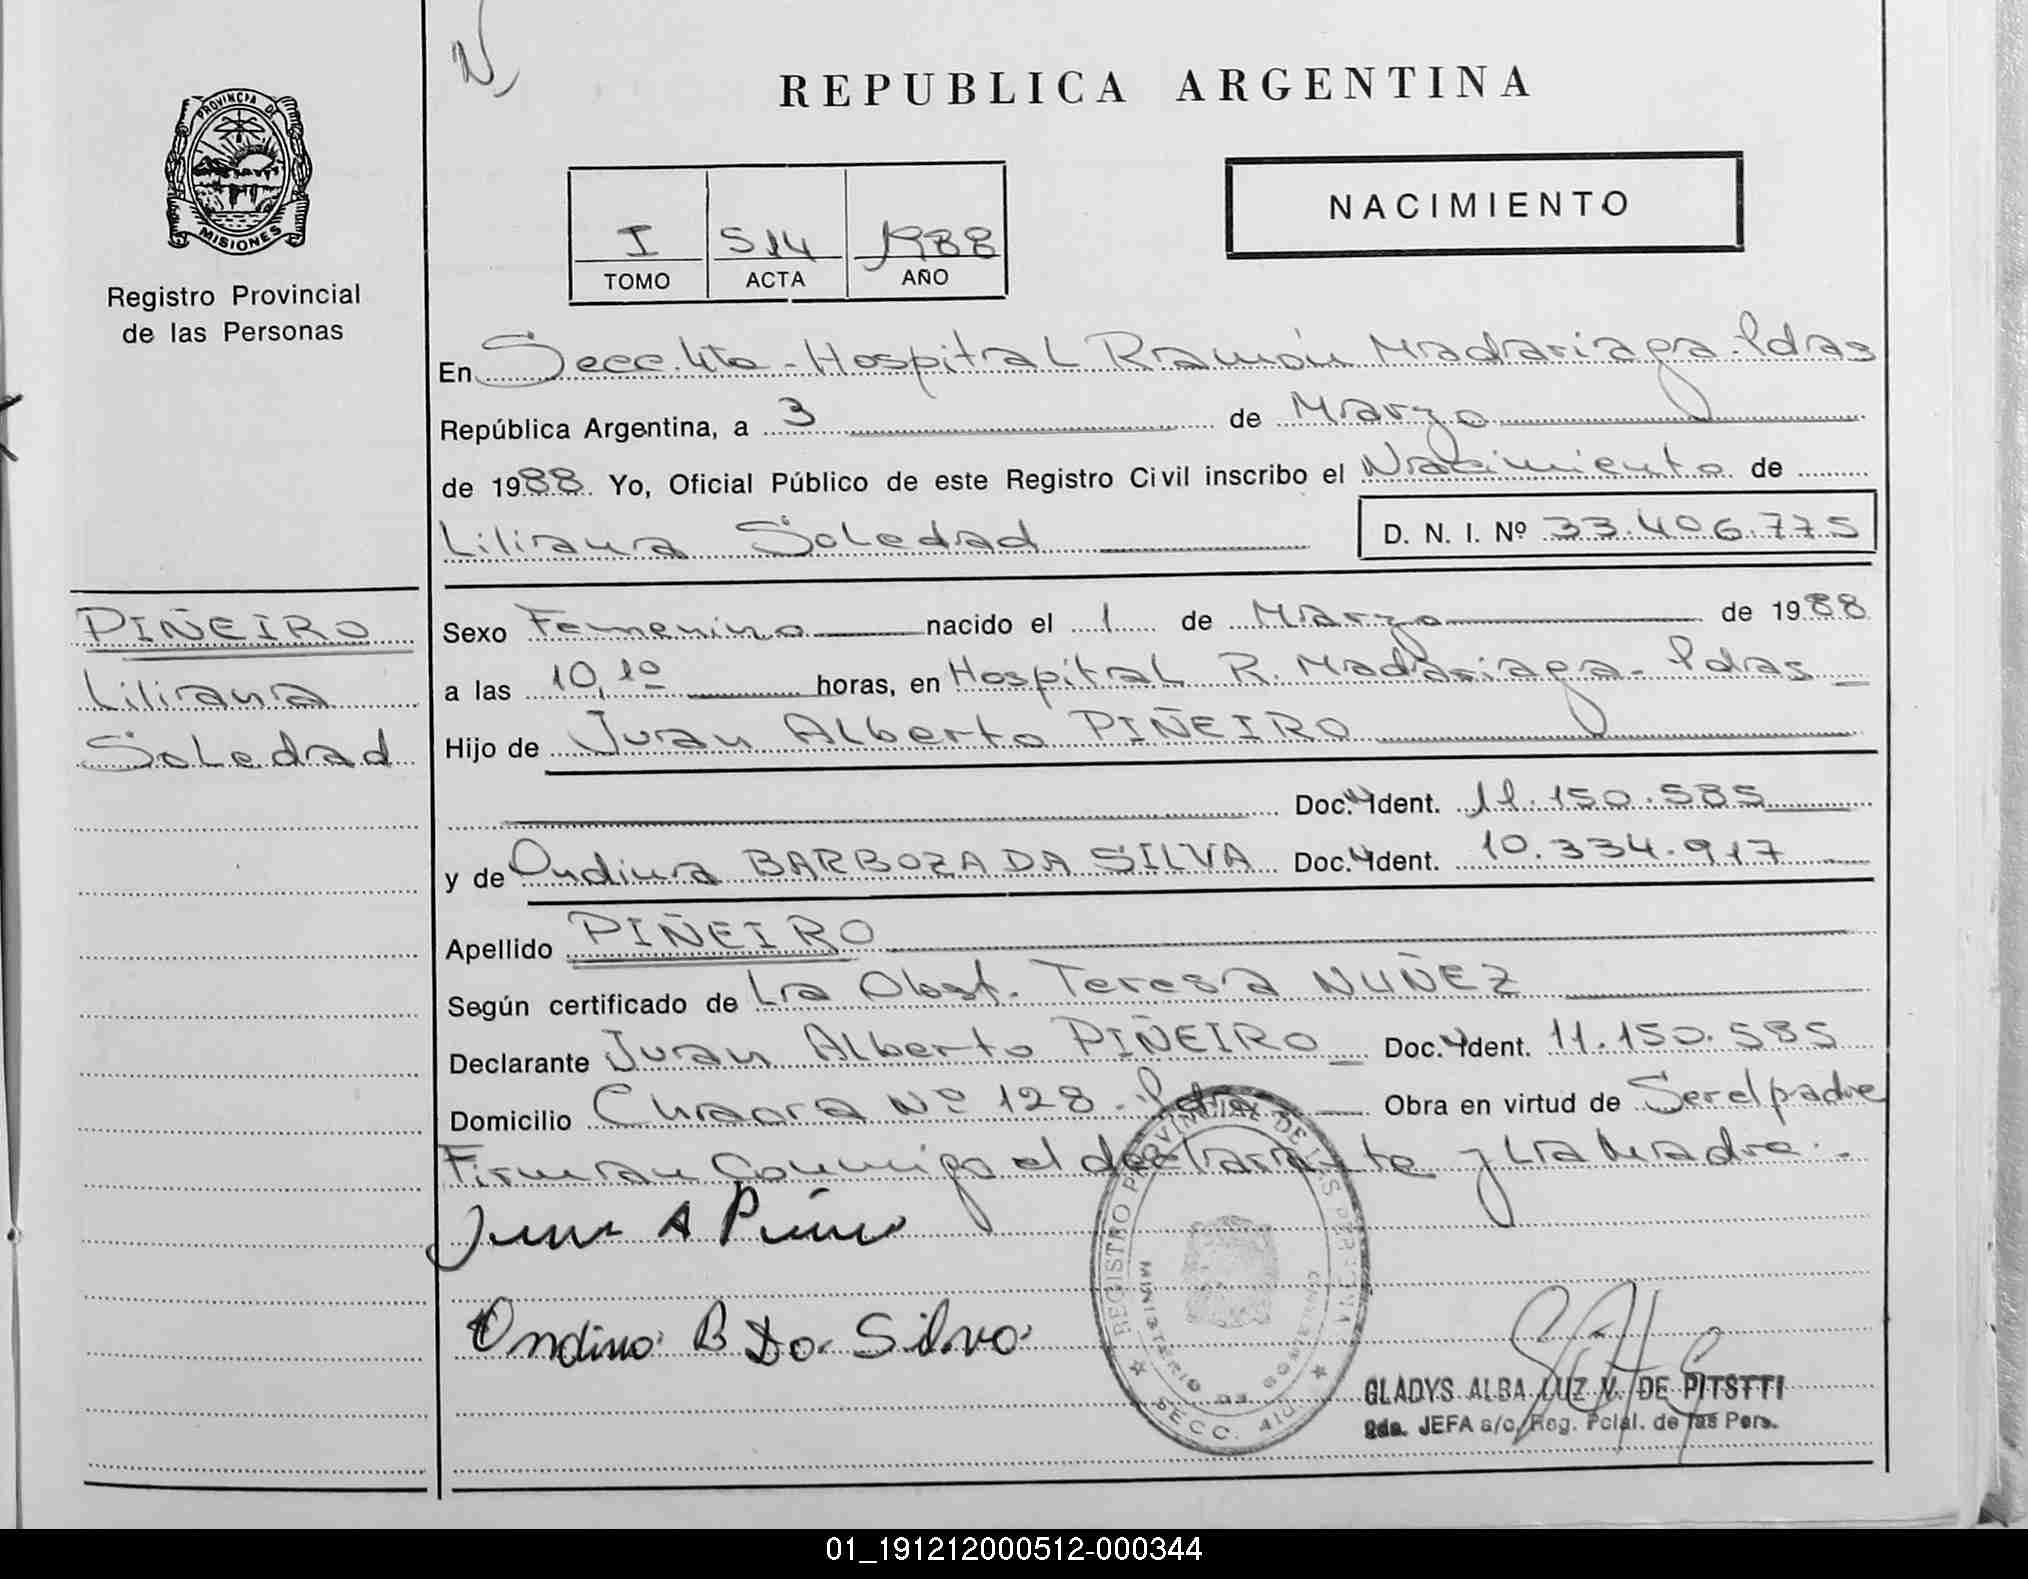 N
REPUBLICA ARGENTINA
PROVINCIA DE
MISIONES
Registro Provincial
de las Personas
NACIMIENTO
I 514 1988
TOMO ACTA AÑO
En Secc. 4ta - Hospital Ramón Madariaga. Pdas
República Argentina, a 3 de Marzo
de 1988. Yo, Oficial Público de este Registro Civil inscribo el Nacimiento de
Liliana Soledad D. N. I. Nº 33.406.775
PIÑEIRO
Liliana
Soledad
Sexo Femenino nacido el 1 de Marzo de 1988
a las 10,10 horas, en Hospital R. Madariaga - Pdas
Hijo de Juan Alberto PIÑEIRO
Doc. Ident. 11.150.585
y de Ondina BARBOZA DA SILVA Doc. Ident. 10.334.917
Apellido PIÑEIRO
Según certificado de La Obst. Teresa NUÑEZ
Declarante Juan Alberto PIÑEIRO Doc. Ident. 11.150.585
Domicilio Chacra Nº 128 - Pdas Obra en virtud de Ser el padre
Firman conmigo el declarante y La Madre.
Juan A Piñeiro
Ondina B Da Silva
REGISTRO PROVINCIAL DE LAS PERSONAS
MINISTERIO DE GOBIERNO
SECC. 4ta
GLADYS ALBA LUZ V. DE PITSTTI
2da. JEFA a/c. Reg. Pcial. de las Pers.
01_191212000512-000344